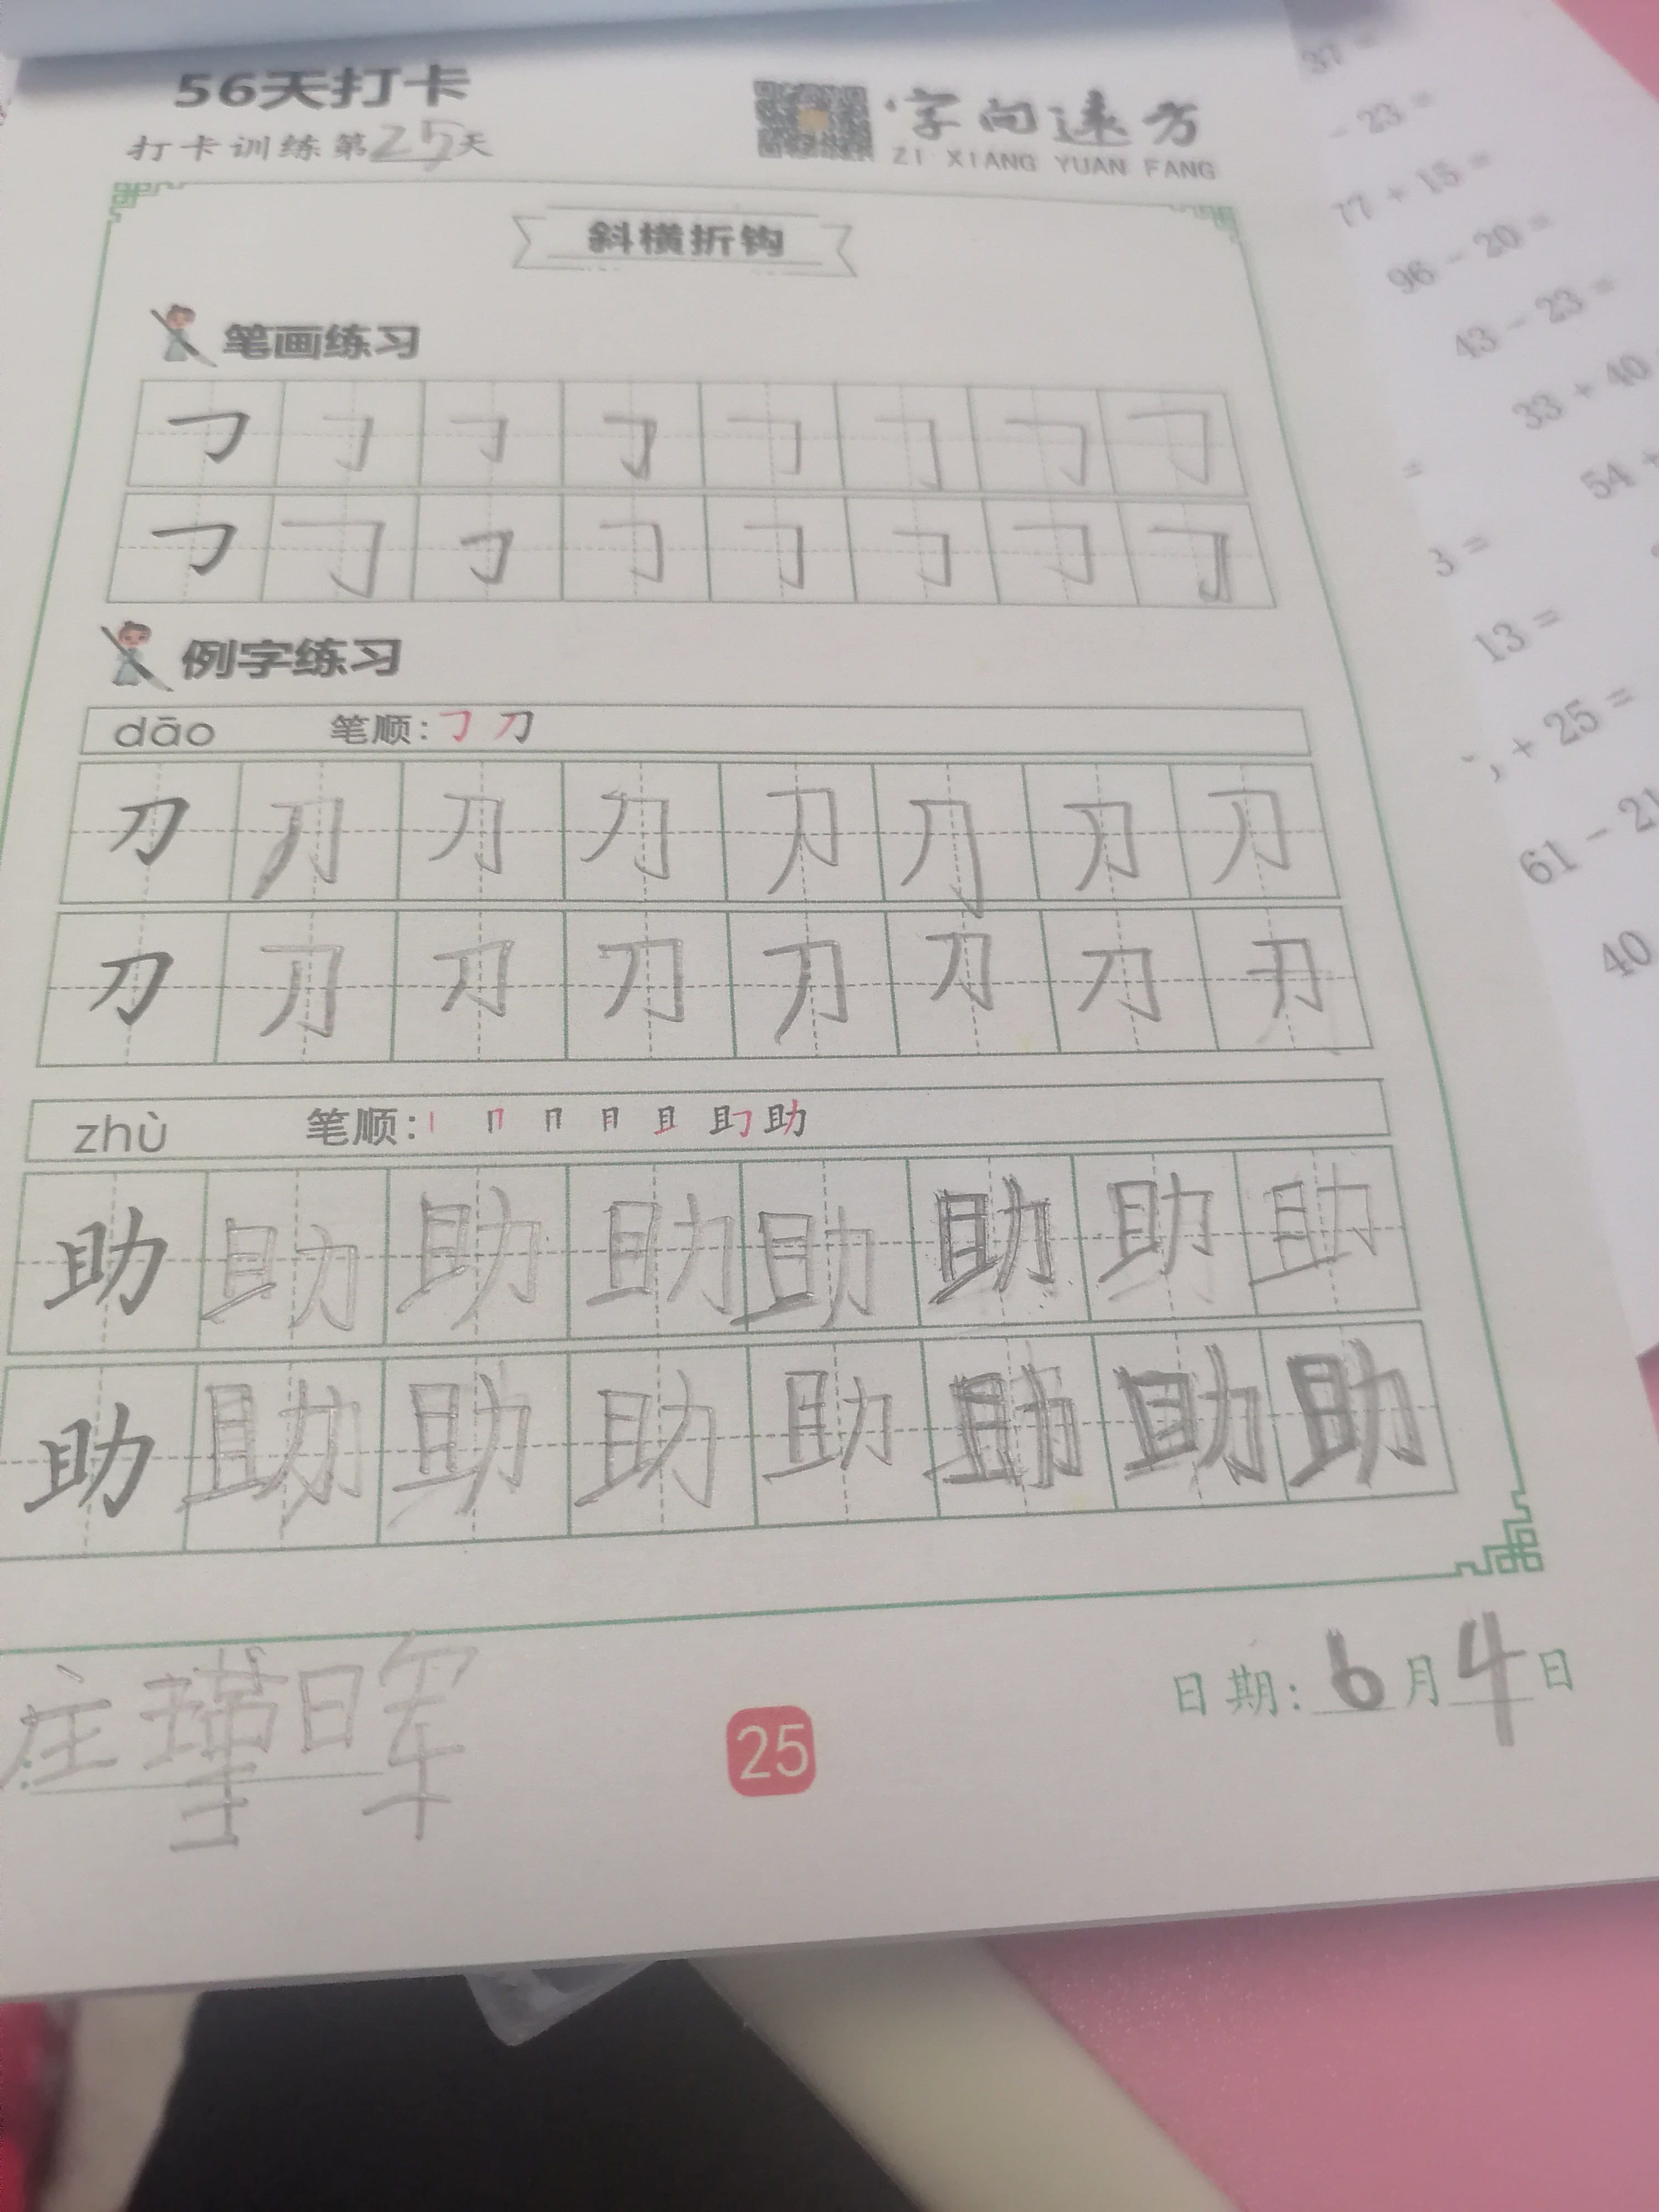 56天打卡
打卡训练第25天
字向远方
ZI XIANG YUAN FANG
斜横折钩
笔画练习
㇆ ㇆ ㇆ ㇆ ㇆ ㇆ ㇆ ㇆
㇆ ㇆ ㇆ ㇆ ㇆ ㇆ ㇆ ㇆
例字练习
dāo 笔顺: ㇆ 刀
刀 刀 刀 刀 刀 刀 刀 刀
刀 刀 刀 刀 刀 刀 刀 刀
zhù 笔顺: 丨 冂 月 且 助
助 助 助 助 助 助 助 助
助 助 助 助 助 助 助 助
庄瑾晖
25
日期: 6月4日
37 =
- 23 =
77 + 15 =
96 - 20 =
43 - 23 =
33 + 40
=
54 +
3 =
13 =
+ 25 =
61 - 21
40